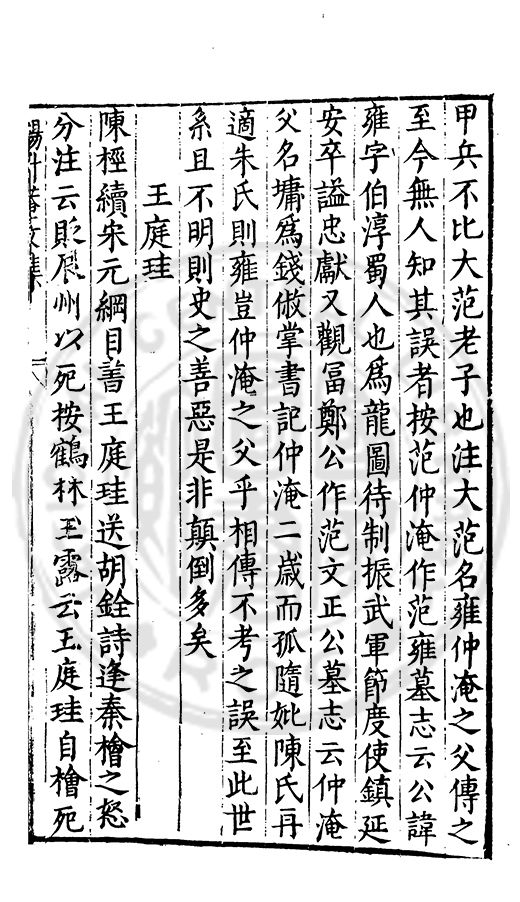 甲兵不比大范老子也注大范名雍仲淹之父傳之
至今無人知其誤者按范仲淹作范雍墓志云公諱
雍字伯淳蜀人也爲龍圖待制振武軍節度使鎮延
安卒謚忠獻又觀冨鄭公作范文正公墓志云仲淹
父名墉爲錢俶掌書記仲淹二歲而孤隨妣陳氏再
適朱氏則雍豈仲淹之父乎相傳不考之誤至此世
系且不明則史之善惡是非顛倒多矣
王庭珪
陳桱續宋元綱目善王庭珪送胡銓詩逢秦檜之怒
分注云貶辰州以死按鶴林玉露云王庭珪自檜死